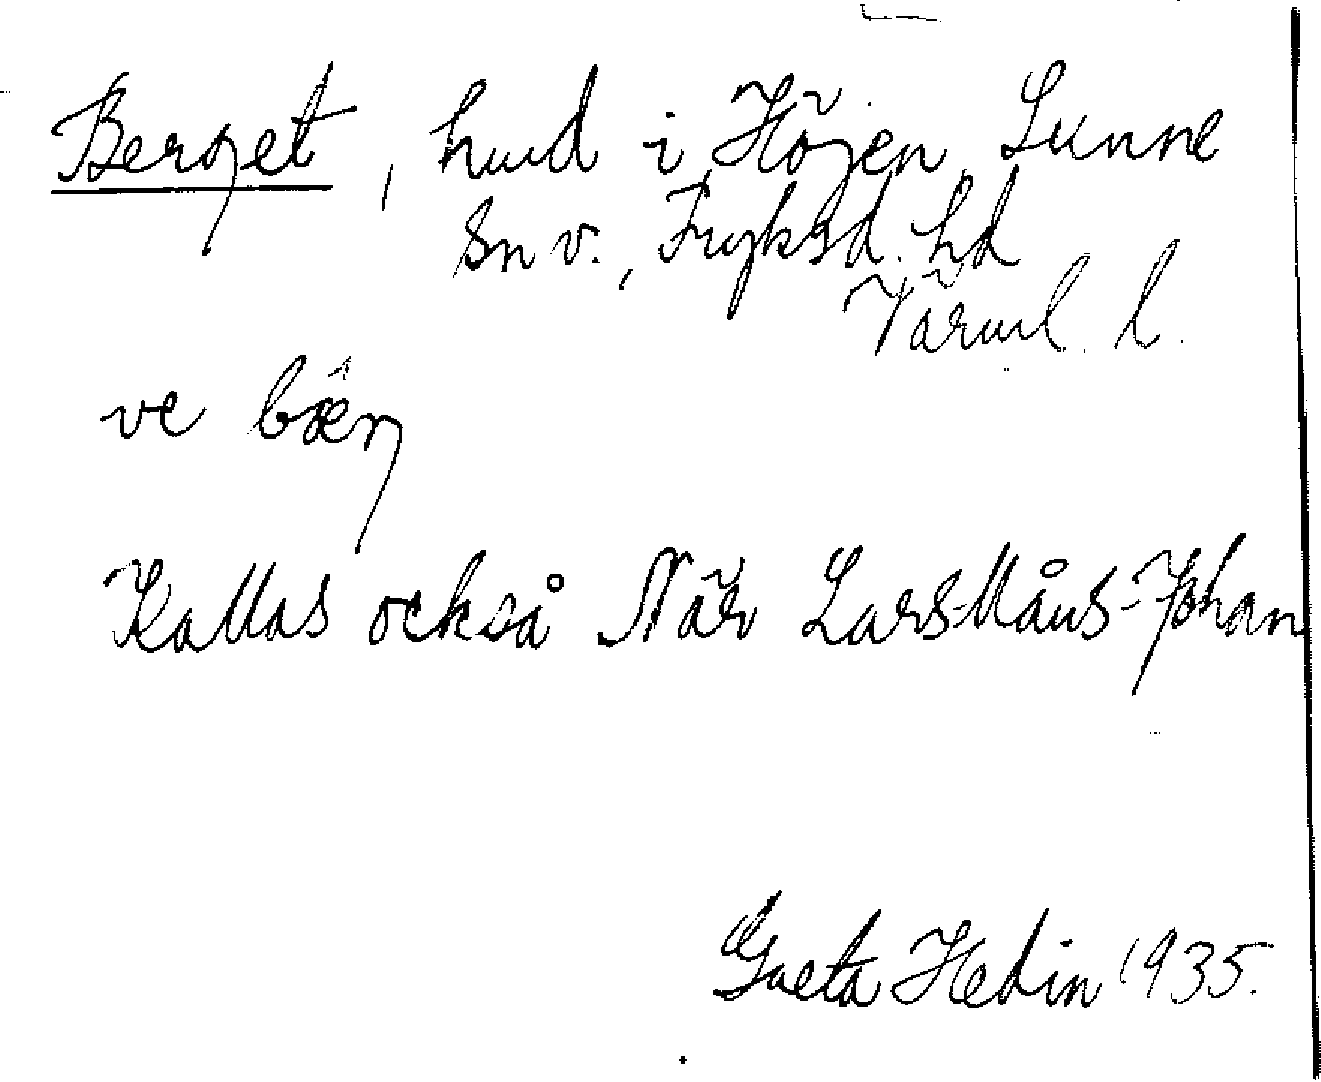 Berget, hmd i Höjen, Sunne
Sn v., Fryksd. hd
Värml. l.
ve bœ̂rj
Kallas också När Lars-Måns-Johan
Greta Hedin 1935.